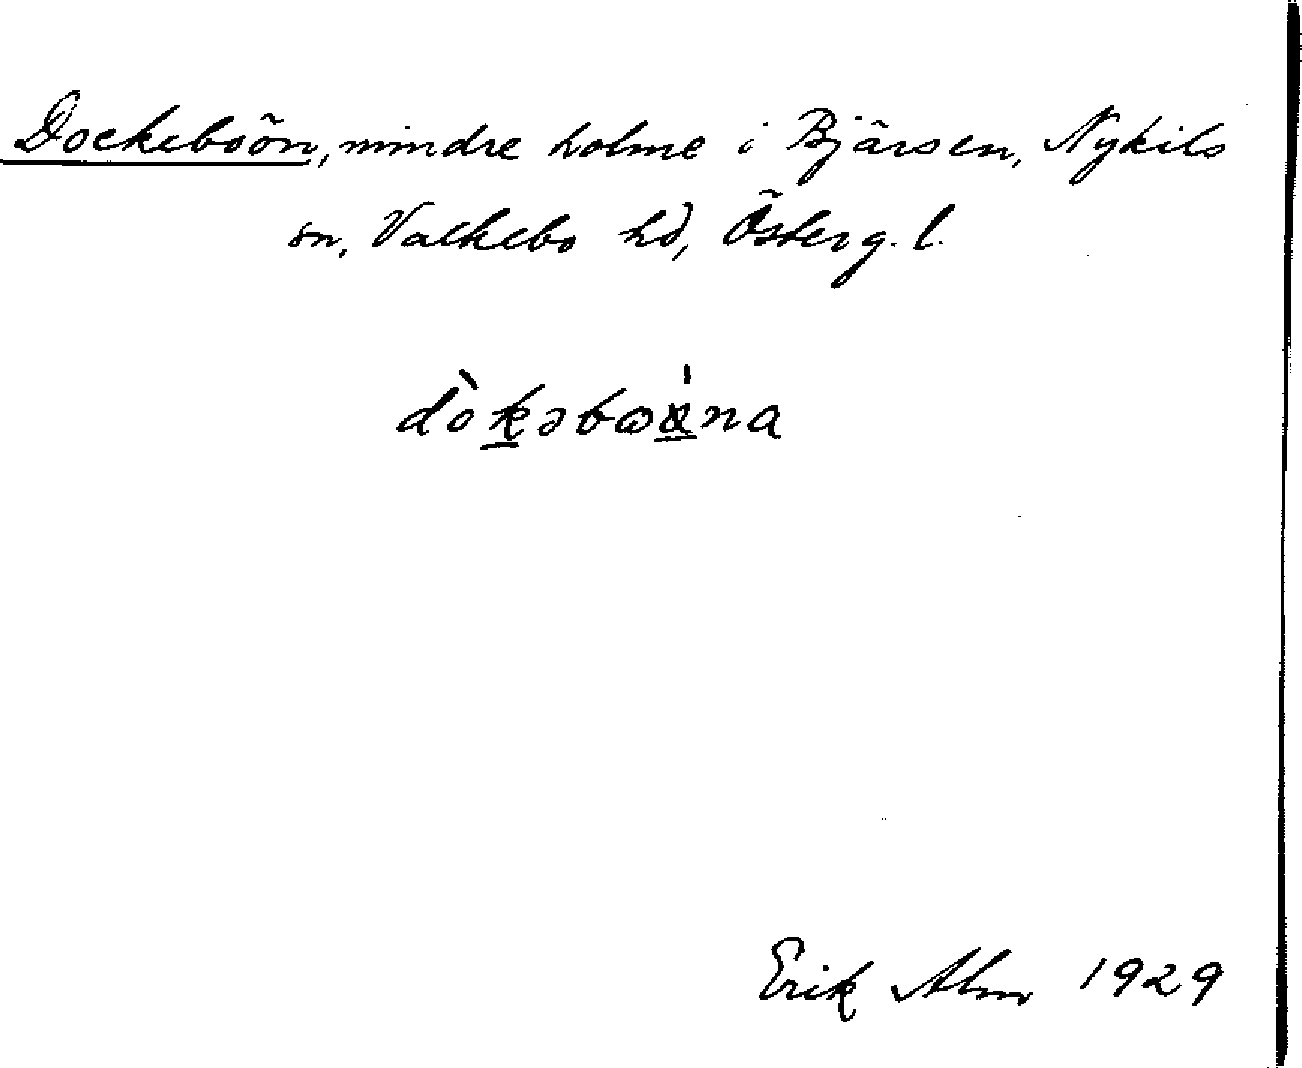 Dockeboön, mindre holme i Bjärsen, Nykils
sn, Valkebo hd, Österg. l.
dòkəbωα̍na
Erik Alm 1929